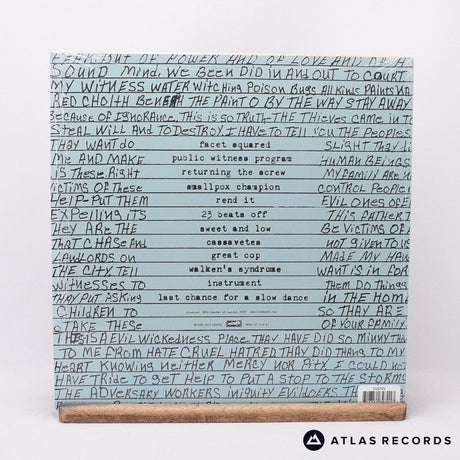 FEAR. BUT OF POWER AND OF LOVE AND OF A
SOUND MIND. WE BEEN DID IN AND OUT TO COURT
MY WITNESS WATER WITCHING POISON BUGS ALL KINDS PAINTS
RED CHOITH BENEATH THE PAINT O BY THE WAY STAY AWAY
BECAUSE OF IGNORANCE. THIS IS SO TRUTH-THE THIEVES CAME IN TO
STEAL WILL AND TO DESTROY. I HAVE TO TELL YOU THE PEOPLES
THAY WANT do facet squared SLIGHT THAY
ME AND MAKE public witness program HUMAN BEINGS
IS THESE. RIGHT returning the screw MY FAMILY ARE
VICTIMS OF THESE smallpox champion CONTROL PEOPLE
HELP-PUT THEM rend it EVIL ONES OF
EXPELLING ITS 23 beats off THIS FATHER
HEY ARE THE sweet and low BE VICTIMS OF
THAT CHASE AND cassavetes NOT GIVEN TO US
LANDLORDS ON great cop MADE MY
THE CITY. TELL walken's syndrome WANT IS IN FOR
WITNESSES TO instrument THEM DO THINGS
THAY PUT ASKING last chance for a slow dance IN THE HOME
CHILDREN TO SO THAY ARE
TAKE THESE OF YOUR FAMILY
THIS IS A EVIL WICKEDNESS PLACE THAY HAVE DID SO MINNY
TO ME FROM HATE CRUEL HATRED THAY DID THANG TO MY
HEART KNOWING NEITHER MERCY NOR PITY I COULD
HAVE TRIDE TO GET HELP TO PUT A STOP TO THE STORMS
THE ADVERSARY WORKERS INIQUITY EVILDOERS
ATLAS RECORDS